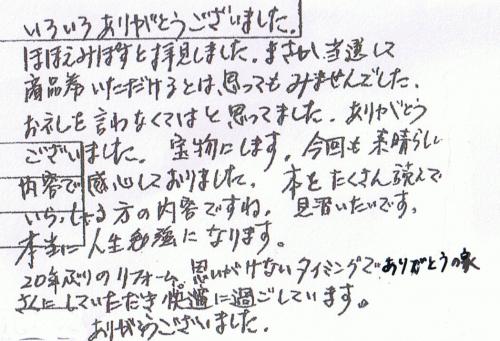 いろいろありがとうございました。
ほほえみぽすと拝見しました。まさか、当選して
商品券いただけるとは、思ってもみませんでした。
お礼を言わなくてはと思ってました。ありがとう
ございました。宝物にします。今回も素晴らしい
内容で感心しておりました。本をたくさん読んで
いらっしゃる方の内容ですね。見習いたいです。
本当に人生勉強になります。
20年ぶりのリフォーム。思いがけないタイミングでありがとうの家
さんにしていただき快適に過ごしています。
ありがとうございました。